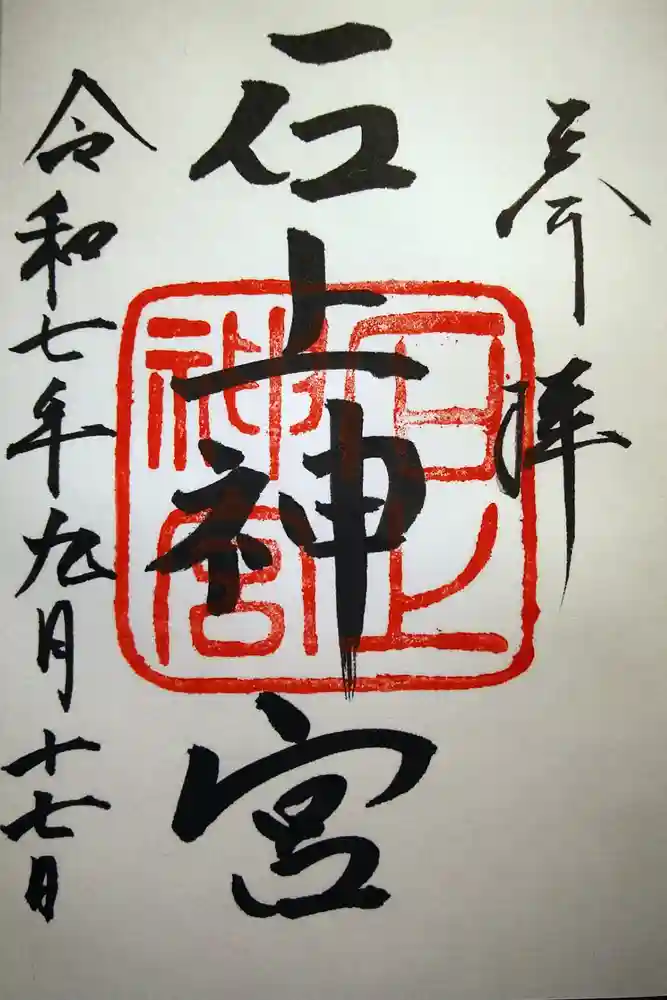 奉拝
石上神宮
石上
神宮
令和七年九月十七日